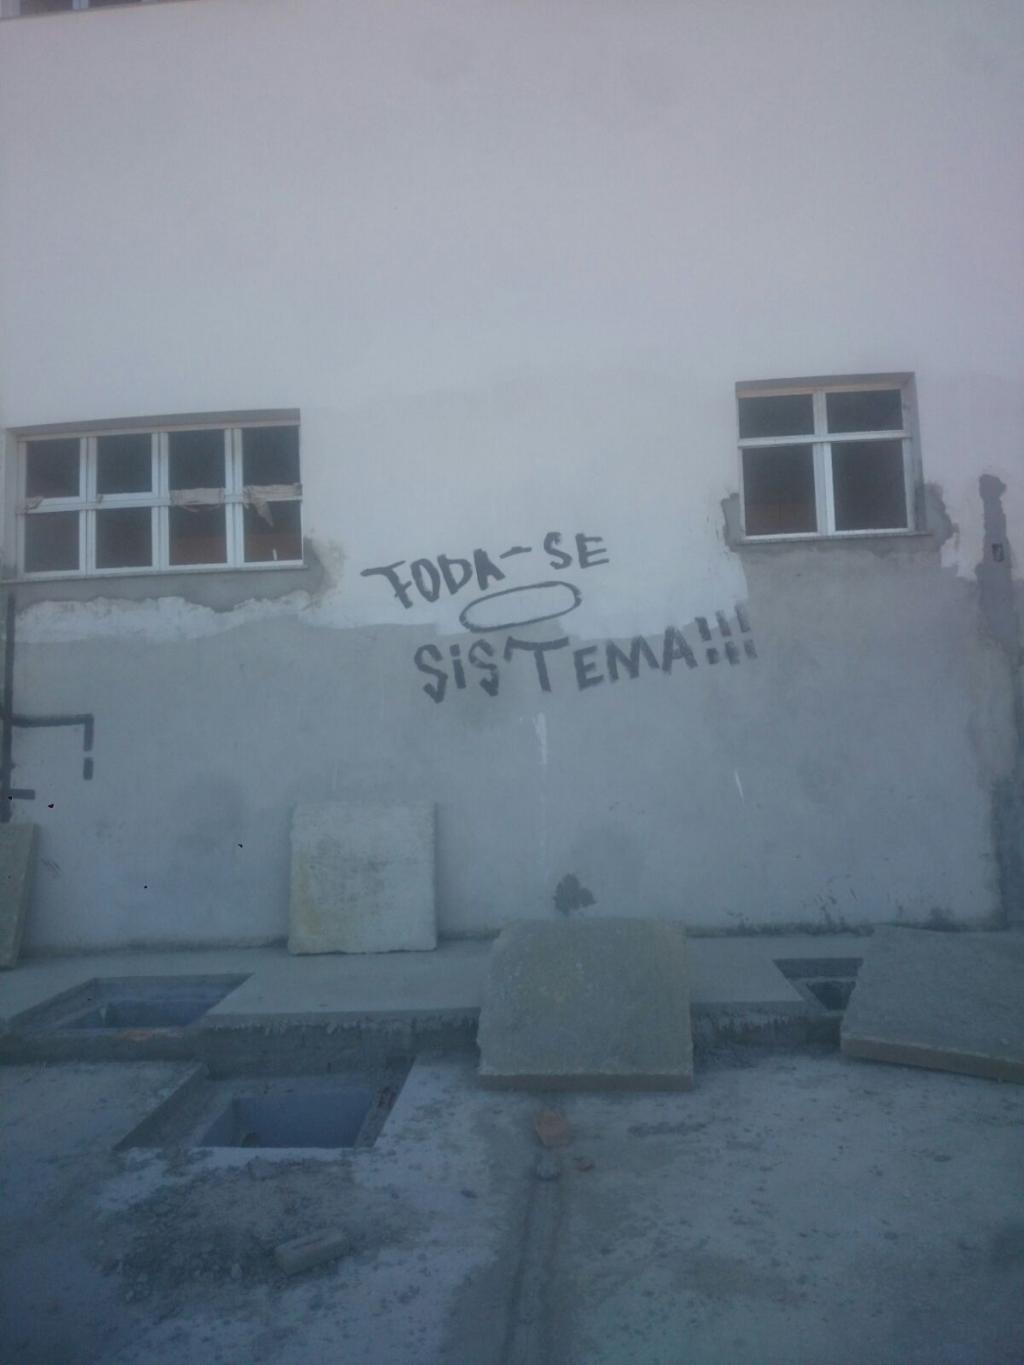 FODA-SE
O
SISTEMA!!!